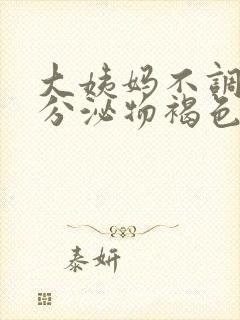 大姨妈不調
分泌物褐色
泰妍